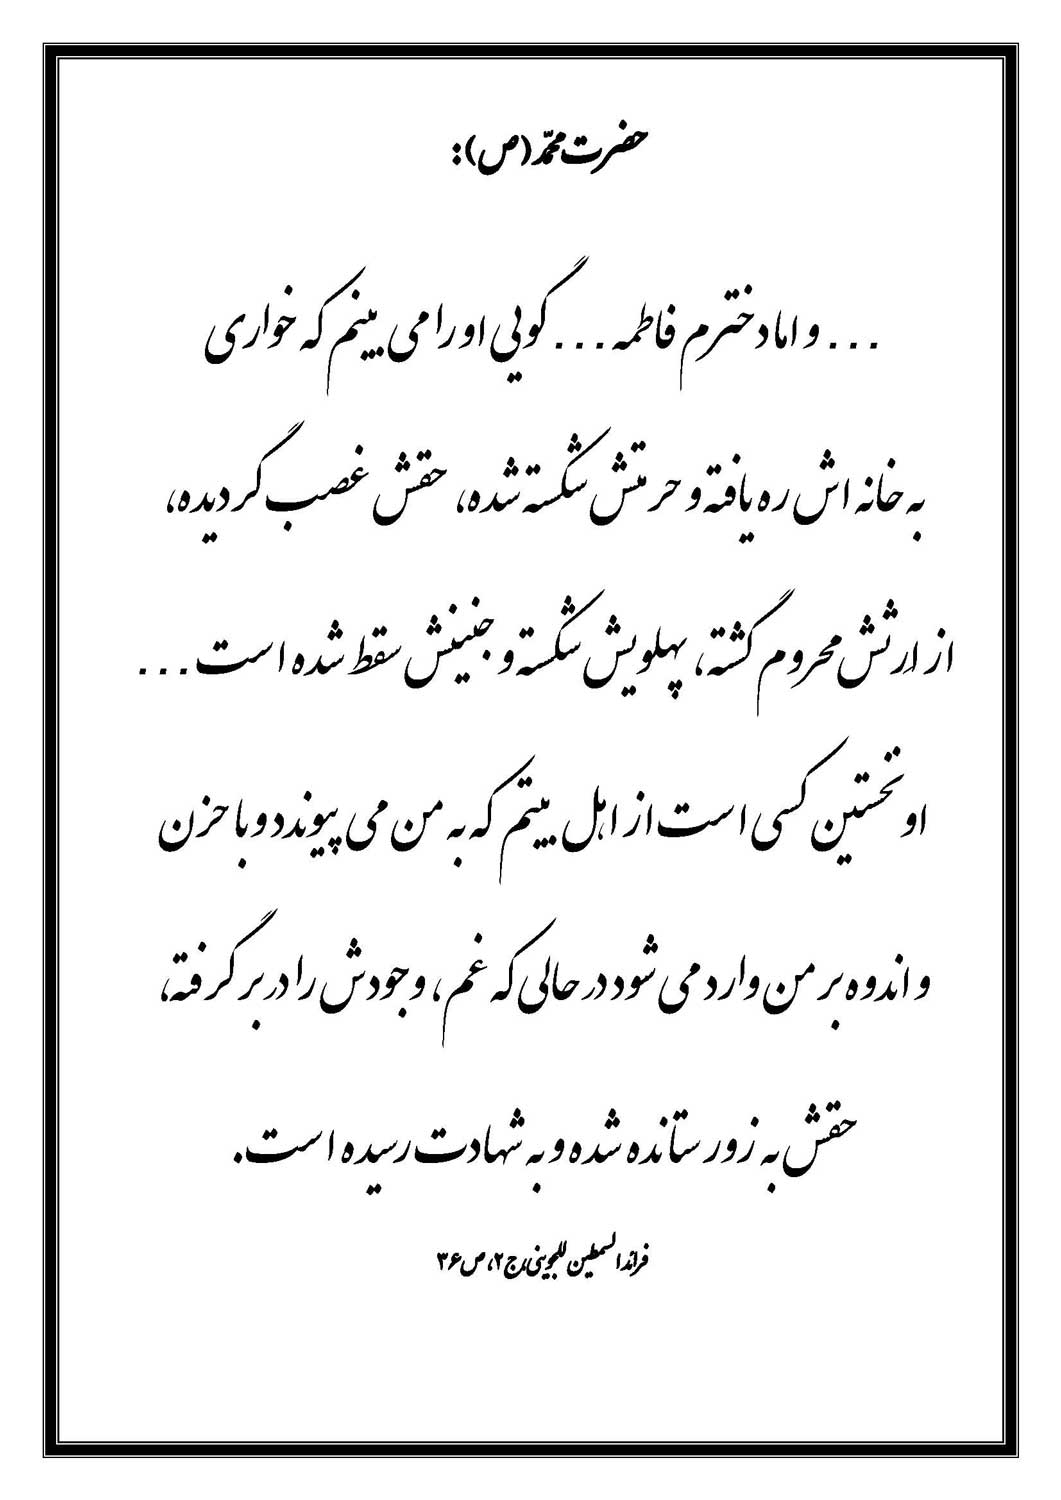 حضرت محمّد (ص):
... و اما دخترم فاطمه ... گویی او را می بینم که خواری
به خانه اش ره یافته و حرمتش شکسته شده، حقش غصب گردیده،
از ارثش محروم گشته، پهلویش شکسته و جنینش سقط شده است ...
او نخستین کسی است از اهل بیتم که به من می پیوندد و با حزن
و اندوه بر من وارد می شود در حالی که غم، وجودش را در بر گرفته،
حقش به زور ستانده شده و به شهادت رسیده است.
فرائد السمطین للجوینی، ج ۲، ص ۳۶